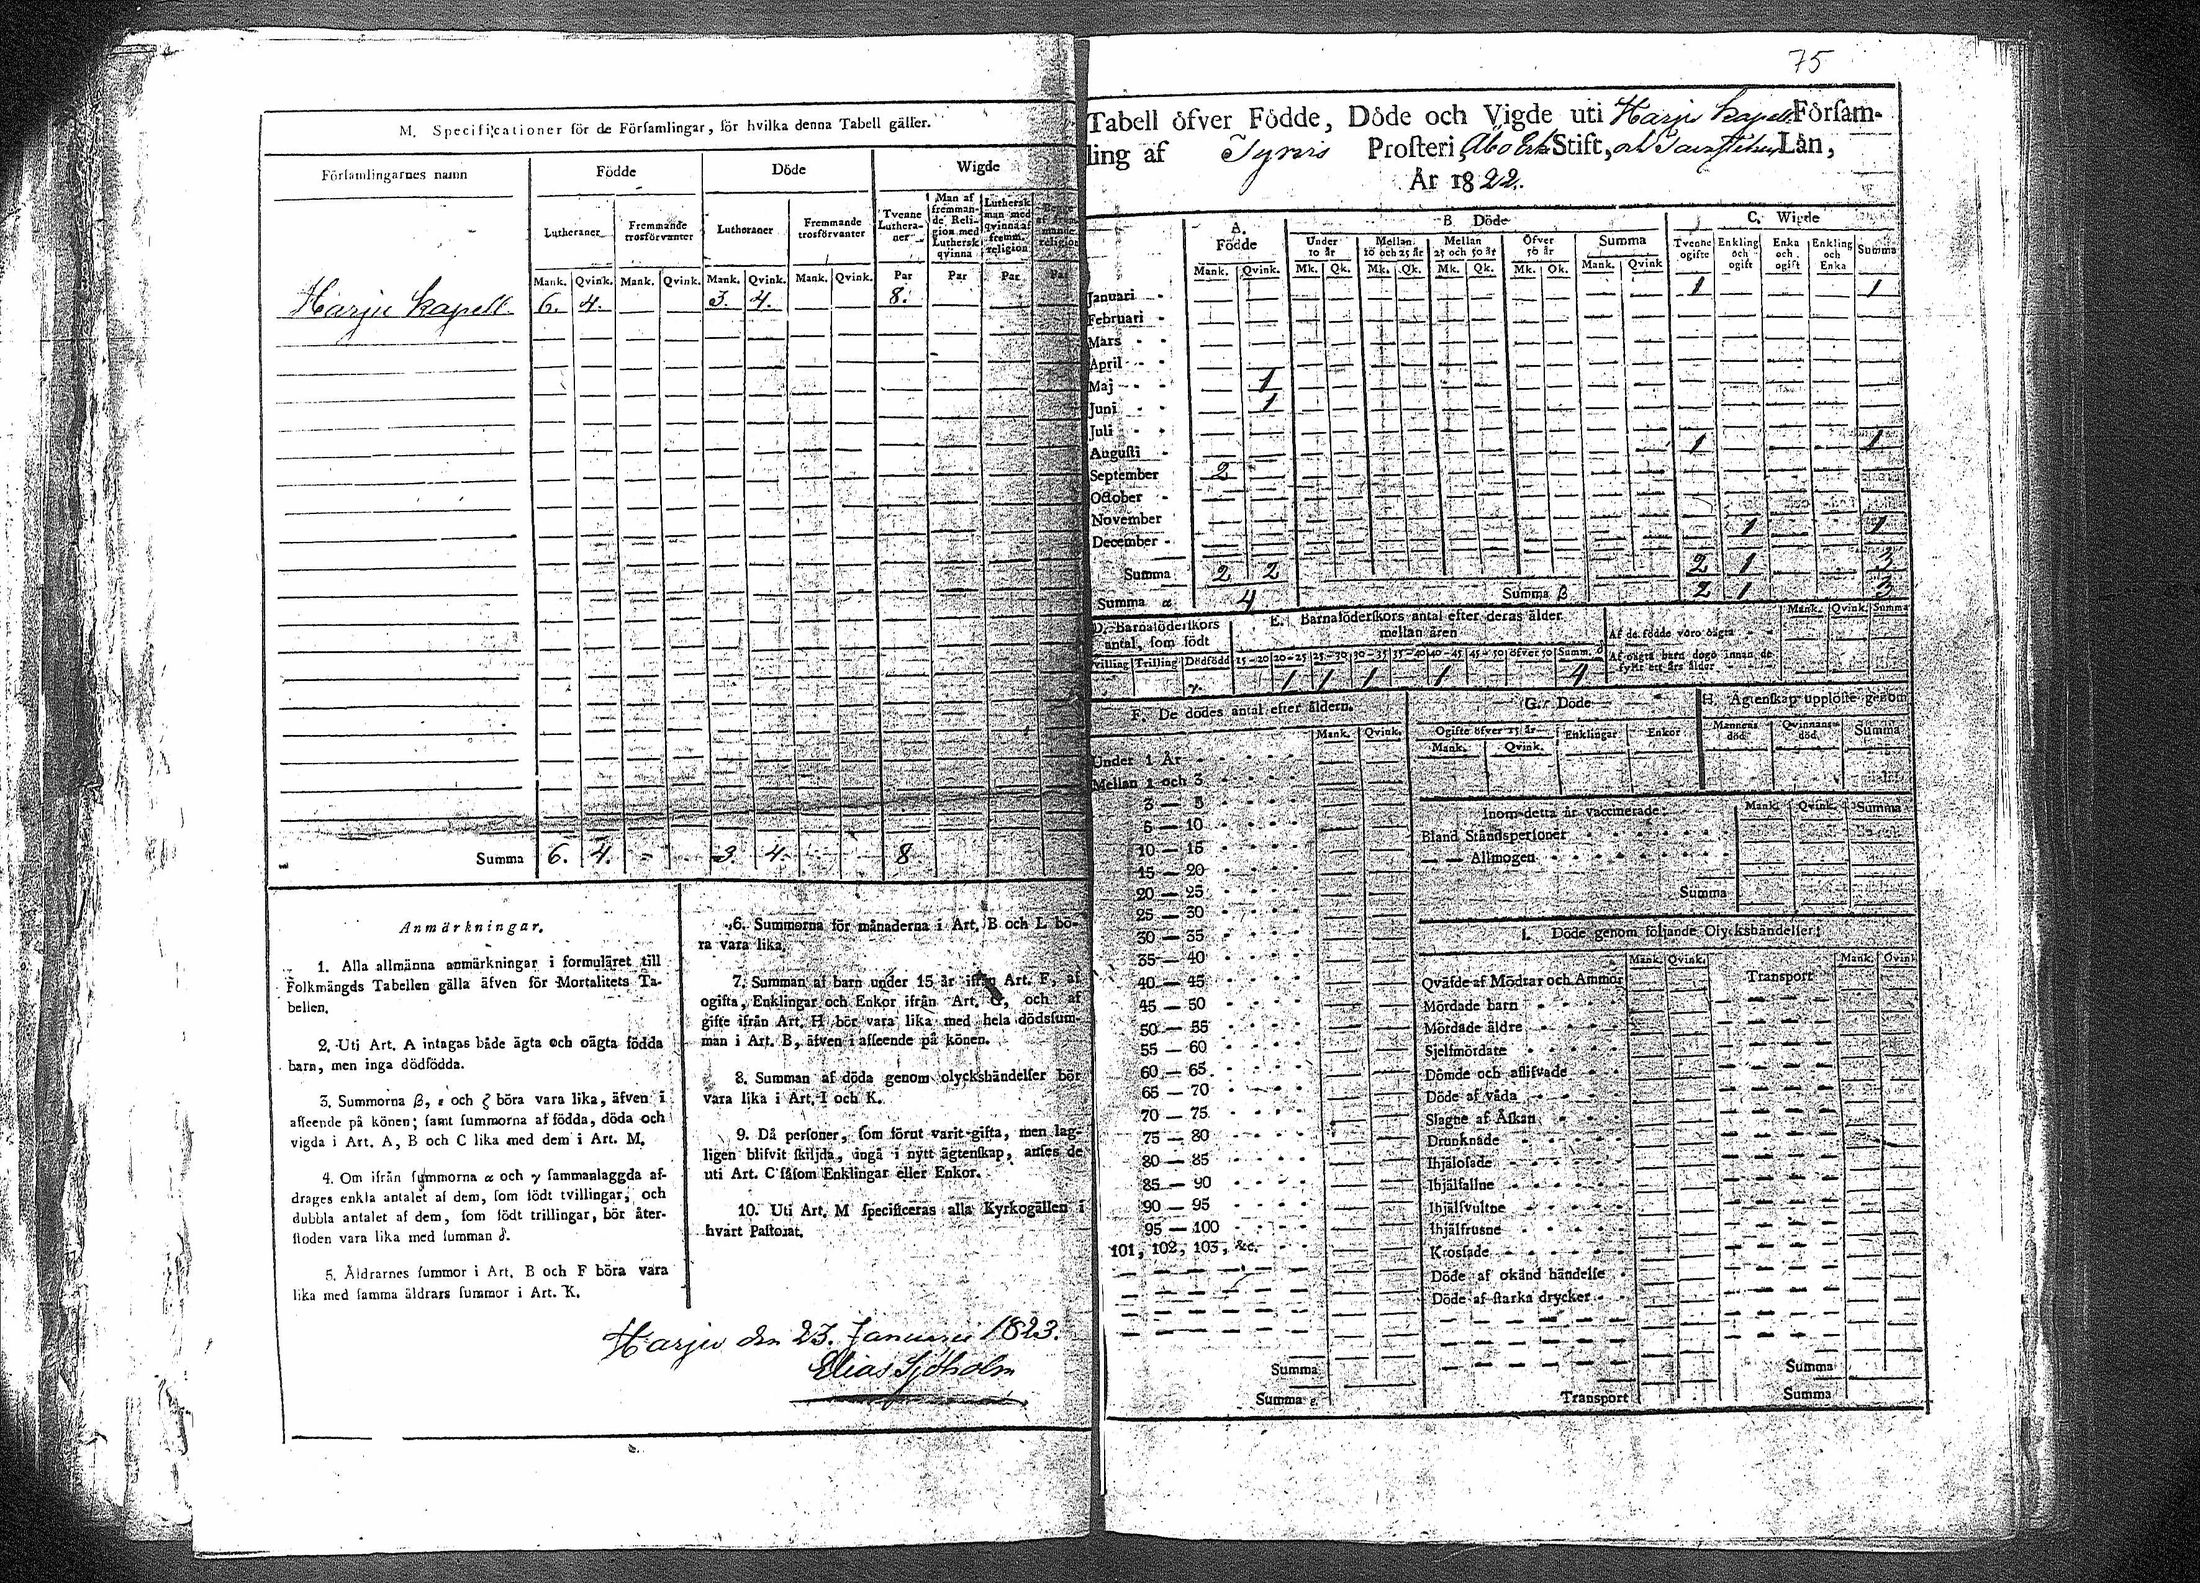 M. Specificationer för de Församlingar, för hvilka denna Tabell gäller.
Församlingarnes namn Födde Döde Wigde
Lutheraner Fremmande trosförvanter Lutheraner Fremmande trosförvanter Tvenne Lutheraner Man af fremmande Religion med Luthersk qvinna Luthersk man med qvinna af fremm. religion
Mank. Qvink. Mank. Qvink. Mank. Qvink. Mank. Qvink. Par Par Par Par
Harju kapell 6. 4. 3. 4. 8.
Summa 6. 4. 3. 4. 8
Anmärkningar.
1. Alla allmänna anmärkningar i formuläret till
Folkmängds Tabellen gälla äfven för Mortalitets Ta-
bellen.
2. Uti Art. A intagas både ägta och oägta födda
barn, men inga dödfödda.
3. Summorna β, ε och ζ böra vara lika, äfven i
afseende på könen; samt summorna af födda, döda och
vigda i Art. A, B och C lika med dem i Art. M.
4. Om ifrån summorna α och γ sammanlaggda af-
drages enkla antalet af dem, som födt tvillingar, och
dubbla antalet af dem, som födt trillingar, bör åter-
stoden vara lika med summan δ.
5. Åldrarnes summor i Art. B och F böra vara
lika med samma åldrars summor i Art. K.
6. Summorna för månaderna i Art. B och L bö-
ra vara lika.
7. Summan af barn under 15 år ifrån Art. F, af
ogifta, Enklingar och Enkor ifrån Art. G, och af
gifte ifrån Art. H bör vara lika med hela dödssum-
man i Art. B, äfven i afseende på könen.
8. Summan af döda genom olyckshändelser bör
vara lika i Art. I och K.
9. Då personer, som förut varit gifta, men lag-
ligen blifvit skiljda, ingå i nytt ägtenskap, anses de
uti Art. C såsom Enklingar eller Enkor.
10. Uti Art. M specificeras alla Kyrkogällen i
hvart Pastorat.
Harju den 23. Januarii 1823.
Elias Sjöholm
75
Tabell öfver Födde, Döde och Vigde uti Harju kapell Församling
ling af Tyrvis Prosteri, Åbo Stift, och Län,
År 1822.
A. Födde B. Döde C. Wigde
Under 10 år Mellan 10 och 25 år Mellan 25 och 50 år Öfver 50 år Summa Tvenne ogifte Enkling och ogift Enka och ogift Enkling och Enka Summa
Mank. Qvink. Mk. Qk. Mk. Qk. Mk. Qk. Mk. Qk. Mank. Qvink
Januari 1 1
Februari
Mars
April
Maj 1
Juni 1
Juli
Augusti 1 1
September 2
October
November 1 1
December
Summa 2 2 2 1 3
Summa α 4 Summa β 2 1 3
D. Barnaföderskors antal, som födt
Tvilling Trilling Dödfödd
γ.
E. Barnaföderskors antal efter deras ålder mellan åren
15-20 20-25 25-30 30-35 35-40 40-45 45-50 öfver 50 Summ. δ
1 1 1 1 4
Mank. Qvink. Summa
Af de födde voro oägta
Af oägta barn dogo innan de fyllt ett års ålder
F. De dödes antal efter åldern.
Mank. Qvink.
Under 1 År
Mellan 1 och 3
3 — 5
5 — 10
10 — 15
15 — 20
20 — 25
25 — 30
30 — 35
35 — 40
40 — 45
45 — 50
50 — 55
55 — 60
60 — 65
65 — 70
70 — 75
75 — 80
80 — 85
85 — 90
90 — 95
95 — 100
101, 102, 103, &c.
Summa
Summa ε
G. Döde
Ogifte öfver 15 år Enklingar Enkor
Mank. Qvink.
H. Ägtenskap upplöste genom
Mannens död Qvinnans död Summa
Inom detta år vaccinerade Mank. Qvink. Summa
Bland Ståndspersoner
— — Allmogen
Summa
I. Döde genom följande Olyckshändelser:
Mank. Qvink. Transport Mank. Qvink.
Qväfde af Mödrar och Ammor
Mördade barn
Mördade äldre
Sjelfmördare
Dömde och aflifvade
Döde af våda
Slagne af Åskan
Drunknade
Ihjälosade
Ihjälfallne
Ihjälsvultne
Ihjälfrusne
Krossade
Döde af okänd händelse
Döde af starka drycker
Summa
Transport Summa